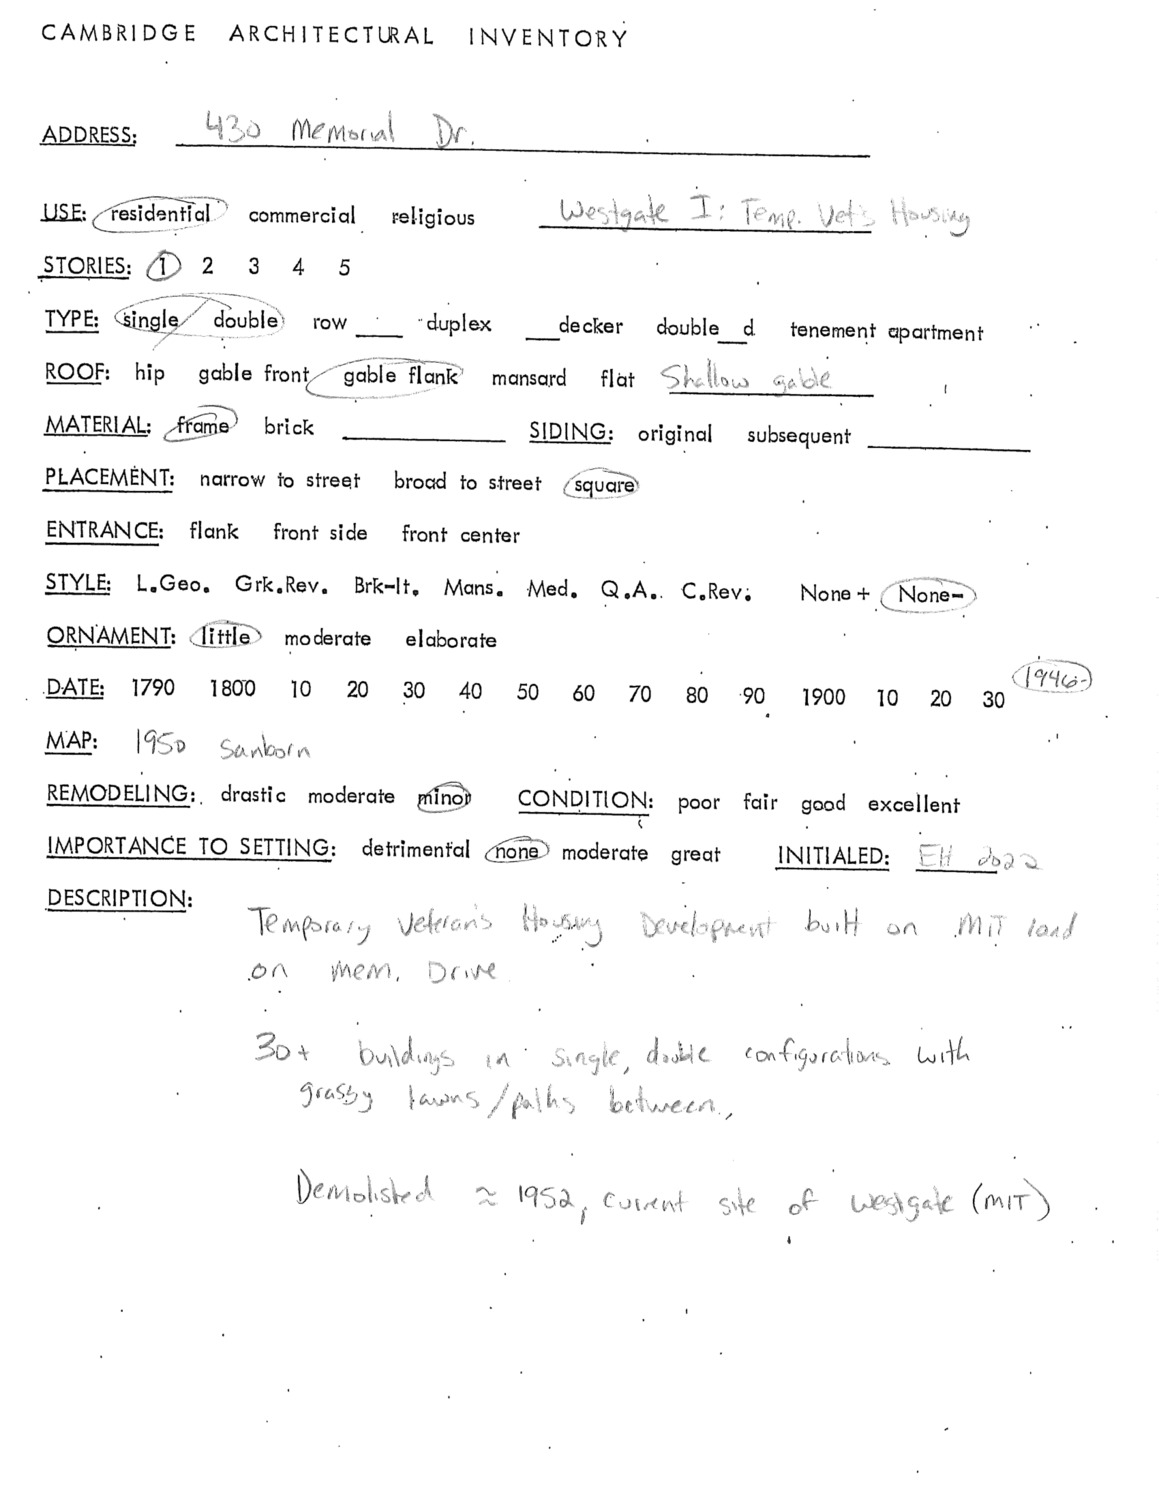 CAMBRIDGE ARCHITECTURAL INVENTORY
ADDRESS: 430 Memorial Dr.
USE: residential commercial religious Westgate I: Temp. Vet's Housing
STORIES: 1 2 3 4 5
TYPE: single/ double row ___ duplex ___decker double__d tenement apartment
ROOF: hip gable front gable flank mansard flat Shallow gable
MATERIAL: frame brick __________ SIDING: original subsequent __________
PLACEMENT: narrow to street broad to street square
ENTRANCE: flank front side front center
STYLE: L.Geo. Grk.Rev. Brk-It. Mans. Med. Q.A. C.Rev. None+ None-
ORNAMENT: little moderate elaborate
DATE: 1790 1800 10 20 30 40 50 60 70 80 90 1900 10 20 30 1946-
MAP: 1950 Sanborn
REMODELING: drastic moderate minor CONDITION: poor fair good excellent
IMPORTANCE TO SETTING: detrimental none moderate great INITIALED: EH 2022
DESCRIPTION:
Temporary Veteran's Housing Development built on MIT land
on Mem. Drive
30+ buildings in single, double configurations with
grassy lawns/paths between,
Demolished ≈ 1952, current site of Westgate (MIT)